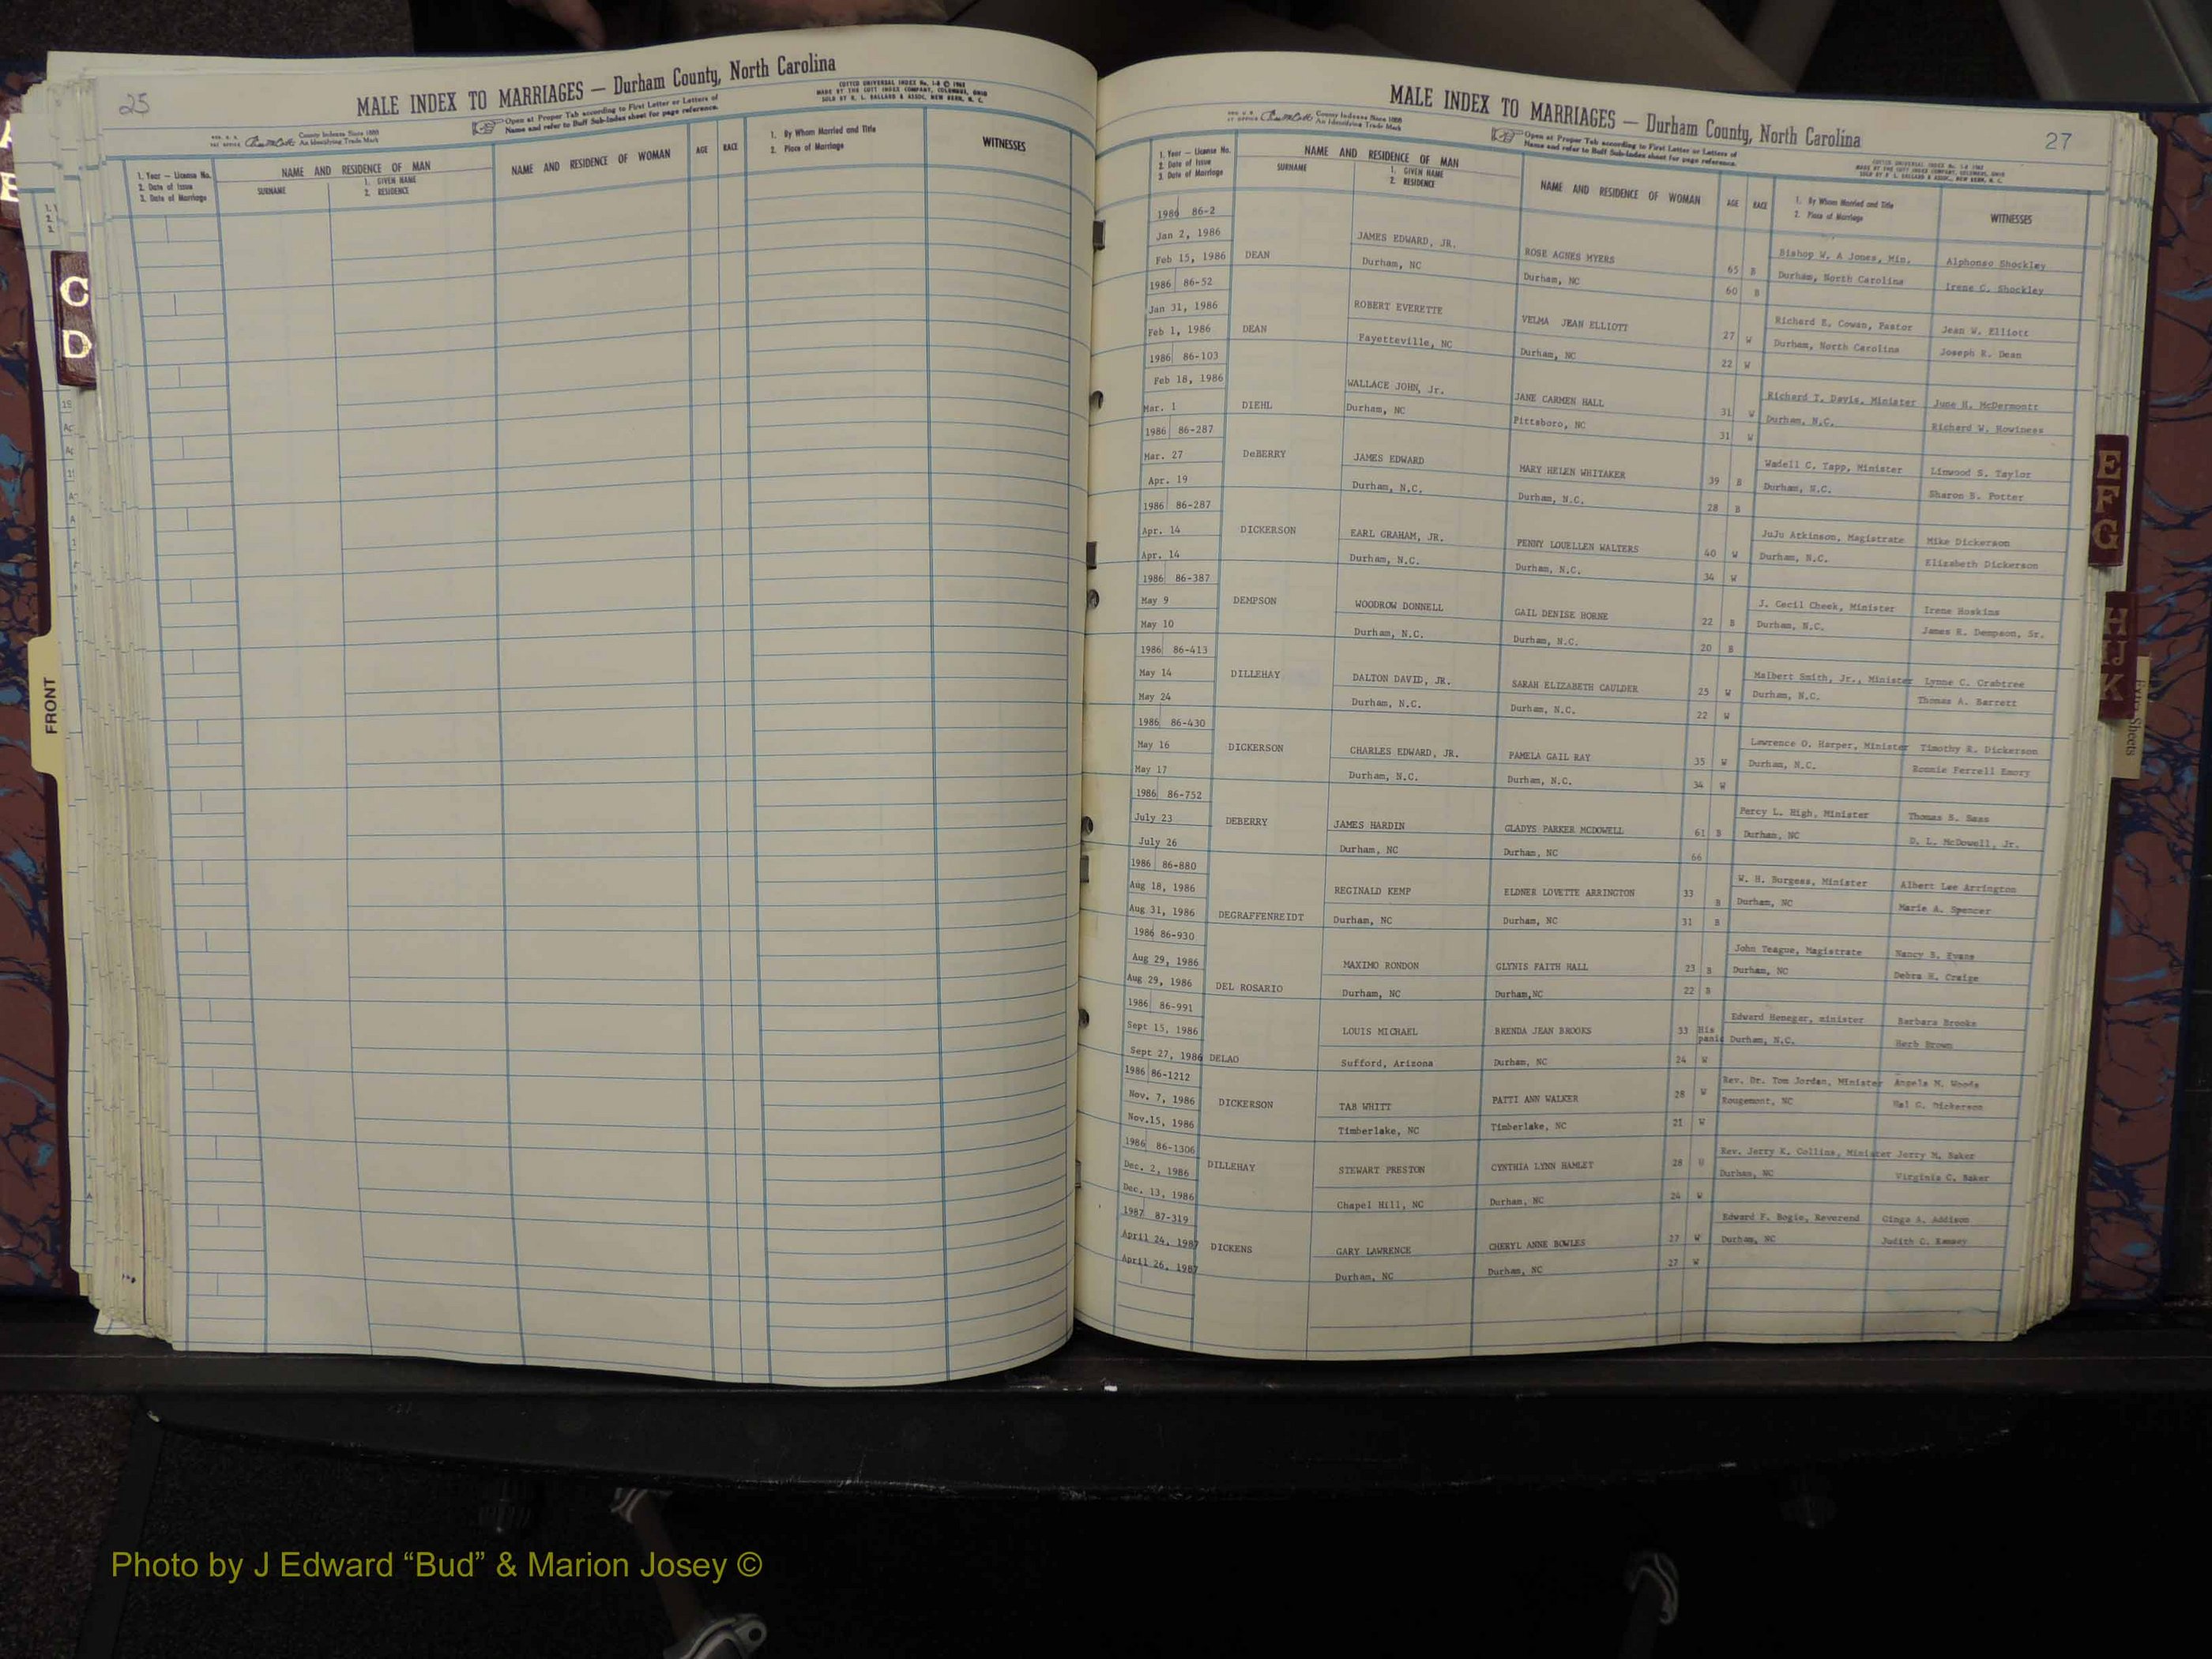 25
MALE INDEX TO MARRIAGES — Durham County, North Carolina
COTTED UNIVERSAL INDEX No. 1-8 © 1962
MADE BY THE COTT INDEX COMPANY, COLUMBUS, OHIO
SOLD BY R. L. BALLARD & ASSOC. NEW BERN, N. C.
County Indexes Since 1888
An Identifying Trade Mark
Open at Proper Tab according to First Letter or Letters of
Name and refer to Buff Sub-Index sheet for page reference.
1. Year — License No.
2. Date of Issue
3. Date of Marriage
NAME AND RESIDENCE OF MAN
SURNAME
1. GIVEN NAME
2. RESIDENCE
NAME AND RESIDENCE OF WOMAN
AGE
RACE
1. By Whom Married and Title
2. Place of Marriage
WITNESSES
C
D
FRONT
MALE INDEX TO MARRIAGES — Durham County, North Carolina
27
County Indexes Since 1888
An Identifying Trade Mark
Open at Proper Tab according to First Letter or Letters of
Name and refer to Buff Sub-Index sheet for page reference.
COTTED UNIVERSAL INDEX No. 1-8 © 1962
MADE BY THE COTT INDEX COMPANY, COLUMBUS, OHIO
SOLD BY R. L. BALLARD & ASSOC., NEW BERN, N. C.
1. Year — License No.
2. Date of Issue
3. Date of Marriage
NAME AND RESIDENCE OF MAN
SURNAME
1. GIVEN NAME
2. RESIDENCE
NAME AND RESIDENCE OF WOMAN
AGE
RACE
1. By Whom Married and Title
2. Place of Marriage
WITNESSES
1986 86-2
Jan 2, 1986 JAMES EDWARD, JR. ROSE AGNES MYERS 65 B Bishop W. A Jones, Min. Alphonso Shockley
Feb 15, 1986 DEAN Durham, NC Durham, NC 60 B Durham, North Carolina Irene C. Shockley
1986 86-52
Jan 31, 1986 ROBERT EVERETTE VELMA JEAN ELLIOTT 27 W Richard E. Cowan, Pastor Jean W. Elliott
Feb 1, 1986 DEAN Fayetteville, NC Durham, NC 22 W Durham, North Carolina Joseph R. Dean
1986 86-103
Feb 18, 1986 WALLACE JOHN, Jr. JANE CARMEN HALL 31 W Richard T. Davis, Minister June H. McDermott
Mar. 1 DIEHL Durham, NC Pittsboro, NC 31 W Durham, N.C. Richard W. Mowiness
1986 86-287
Mar. 27 DeBERRY JAMES EDWARD MARY HELEN WHITAKER 39 B Wadell C. Tapp, Minister Linwood S. Taylor
Apr. 19 Durham, N.C. Durham, N.C. 28 B Durham, N.C. Sharon B. Potter
1986 86-287
Apr. 14 DICKERSON EARL GRAHAM, JR. PENNY LOUELLEN WALTERS 40 W JuJu Atkinson, Magistrate Mike Dickerson
Apr. 14 Durham, N.C. Durham, N.C. 34 W Durham, N.C. Elizabeth Dickerson
1986 86-387
May 9 DEMPSON WOODROW DONNELL GAIL DENISE HORNE 22 B J. Cecil Cheek, Minister Irene Hoskins
May 10 Durham, N.C. Durham, N.C. 20 B Durham, N.C. James R. Dempson, Sr.
1986 86-413
May 14 DILLEHAY DALTON DAVID, JR. SARAH ELIZABETH CAULDER 25 W Malbert Smith, Jr., Minister Lynne C. Crabtree
May 24 Durham, N.C. Durham, N.C. 22 W Durham, N.C. Thomas A. Barrett
1986 86-430
May 16 DICKERSON CHARLES EDWARD, JR. PAMELA GAIL RAY 35 W Lawrence O. Harper, Minister Timothy R. Dickerson
May 17 Durham, N.C. Durham, N.C. 34 W Durham, N.C. Ronnie Ferrell Emory
1986 86-752
July 23 DEBERRY JAMES HARDIN GLADYS PARKER MCDOWELL 61 B Percy L. High, Minister Thomas B. Bass
July 26 Durham, NC Durham, NC 66 Durham, NC D. L. McDowell, Jr.
1986 86-880
Aug 18, 1986 REGINALD KEMP ELDNER LOVETTE ARRINGTON 33 B W. H. Burgess, Minister Albert Lee Arrington
Aug 31, 1986 DEGRAFFENREIDT Durham, NC Durham, NC 31 B Durham, NC Marie A. Spencer
1986 86-930
Aug 29, 1986 MAXIMO RONDON GLYNIS FAITH HALL 23 B John Teague, Magistrate Nancy B. Evans
Aug 29, 1986 DEL ROSARIO Durham, NC Durham,NC 22 B Durham, NC Debra H. Craige
1986 86-991
Sept 15, 1986 LOUIS MICHAEL BRENDA JEAN BROOKS 33 His panic Edward Heneger, minister Barbara Brooks
Sept 27, 1986 DELAO Sufford, Arizona Durham, NC 24 W Durham, N.C. Herb Brown
1986 86-1212
Nov. 7, 1986 DICKERSON TAB WHITT PATTI ANN WALKER 28 W Rev. Dr. Tom Jordan, Minister Angela M. Woods
Nov.15, 1986 Timberlake, NC Timberlake, NC 21 W Rougemont, NC Hal G. Dickerson
1986 86-1306
Dec. 2, 1986 DILLEHAY STEWART PRESTON CYNTHIA LYNN HAMLET 28 Rev. Jerry K. Collins, Minister Jerry M. Baker
Dec. 13, 1986 Chapel Hill, NC Durham, NC 24 W Durham, NC Virginia C. Baker
1987 87-319
April 24, 1987 DICKENS GARY LAWRENCE CHERYL ANNE BOWLES 27 W Edward F. Bogie, Reverend Ginga A. Addison
April 26, 1987 Durham, NC Durham, NC 27 W Durham, NC Judith C. Ramsey
E
F
G
H
IJ
K
Extra Sheets
Photo by J Edward “Bud” & Marion Josey ©